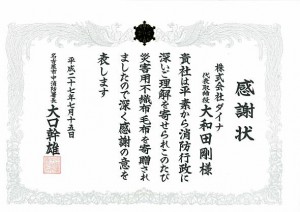 感謝状
株式会社ダイナ
代表取締役 大和田剛様
貴社は平素から消防行政に
深いご理解を寄せられこのたび
災害用不織布毛布を寄贈され
ましたので深く感謝の意を
表します
平成二十七年七月十五日
名古屋市中消防署長 大口幹雄